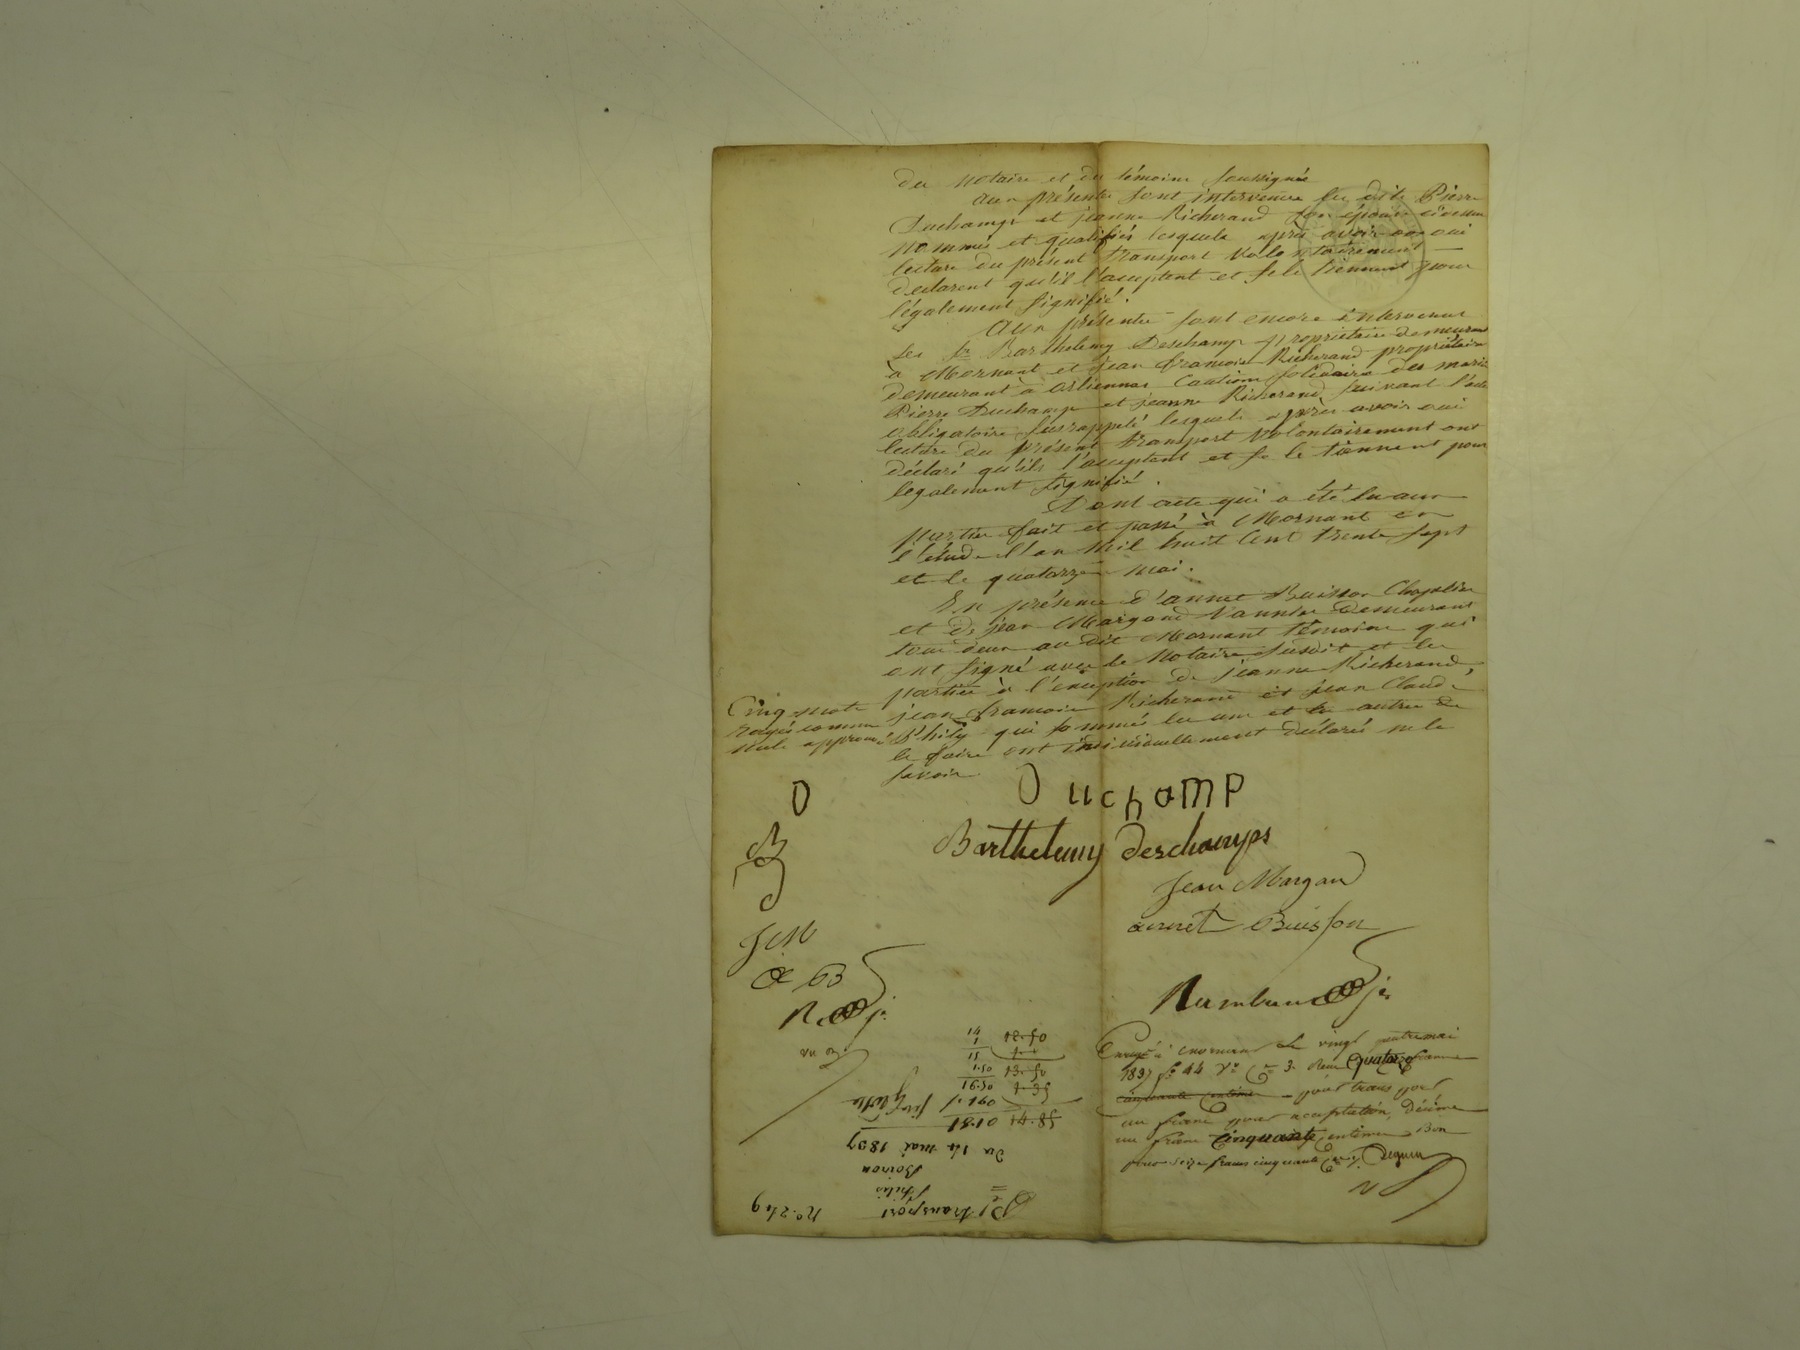 du notaire et des témoins soussignés
aux présentes sont intervenus les dits Pierre
Duchamp et jeanne Richerand son épouse ci dessus
nommés et qualifiés lesquels après avoir oui
lecture du présent transport Volontairement
declarent qu'il l'acceptent et se le tiennent pour
légalement signifié.
Aux présentes sont encore intervenus
les Sr Barthelemy Deschamp propriétaire demeurant
à Mornant et jean francois Richerand propriétaire
demeurant à orliennas Cautions solidaires des mariés
Pierre Duchamp et jeanne Richerand suivant l'acte
obligatoire susrappelé lesquels après avoir oui
lecture du présent transport Volontairement ont
déclaré qu'ils l'acceptent et se le tiennent pour
légalement signifié.
Dont acte qui a été lu aux
parties fait et passé à Mornant en
l'étude l'an mil huit cent trente sept
et le quatorze mai.
En présence d'annet Buisson Chapelier
et de jean Margand Vannier demeurant
tous deux au dit Mornant témoins qui
ont signé avec le Notaire susdit et les
parties à l'exception de jeanne Richerand,
jean francois Richerand et jean Claude
Philis qui sommés les uns et les autres de
le faire ont individuellement déclaré ne le
savoir.
Cinq mots
rayés comme
nuls approuvés
D
Duchamp
Barthelemy Deschamps
Jean Margan
annet Buisson
J M
a B
R
j.
Enregé à mornant le vingt quatre mai
1837 fo 44 Vo Ce 3. Reçu quatorze francs
cinquante centimes pour transport
un franc pour acceptation, Décime
un franc cinquante centimes Bon
pour seize francs cinquante
No. 249
transport
Philis
Boiron
du 14 mai 1837